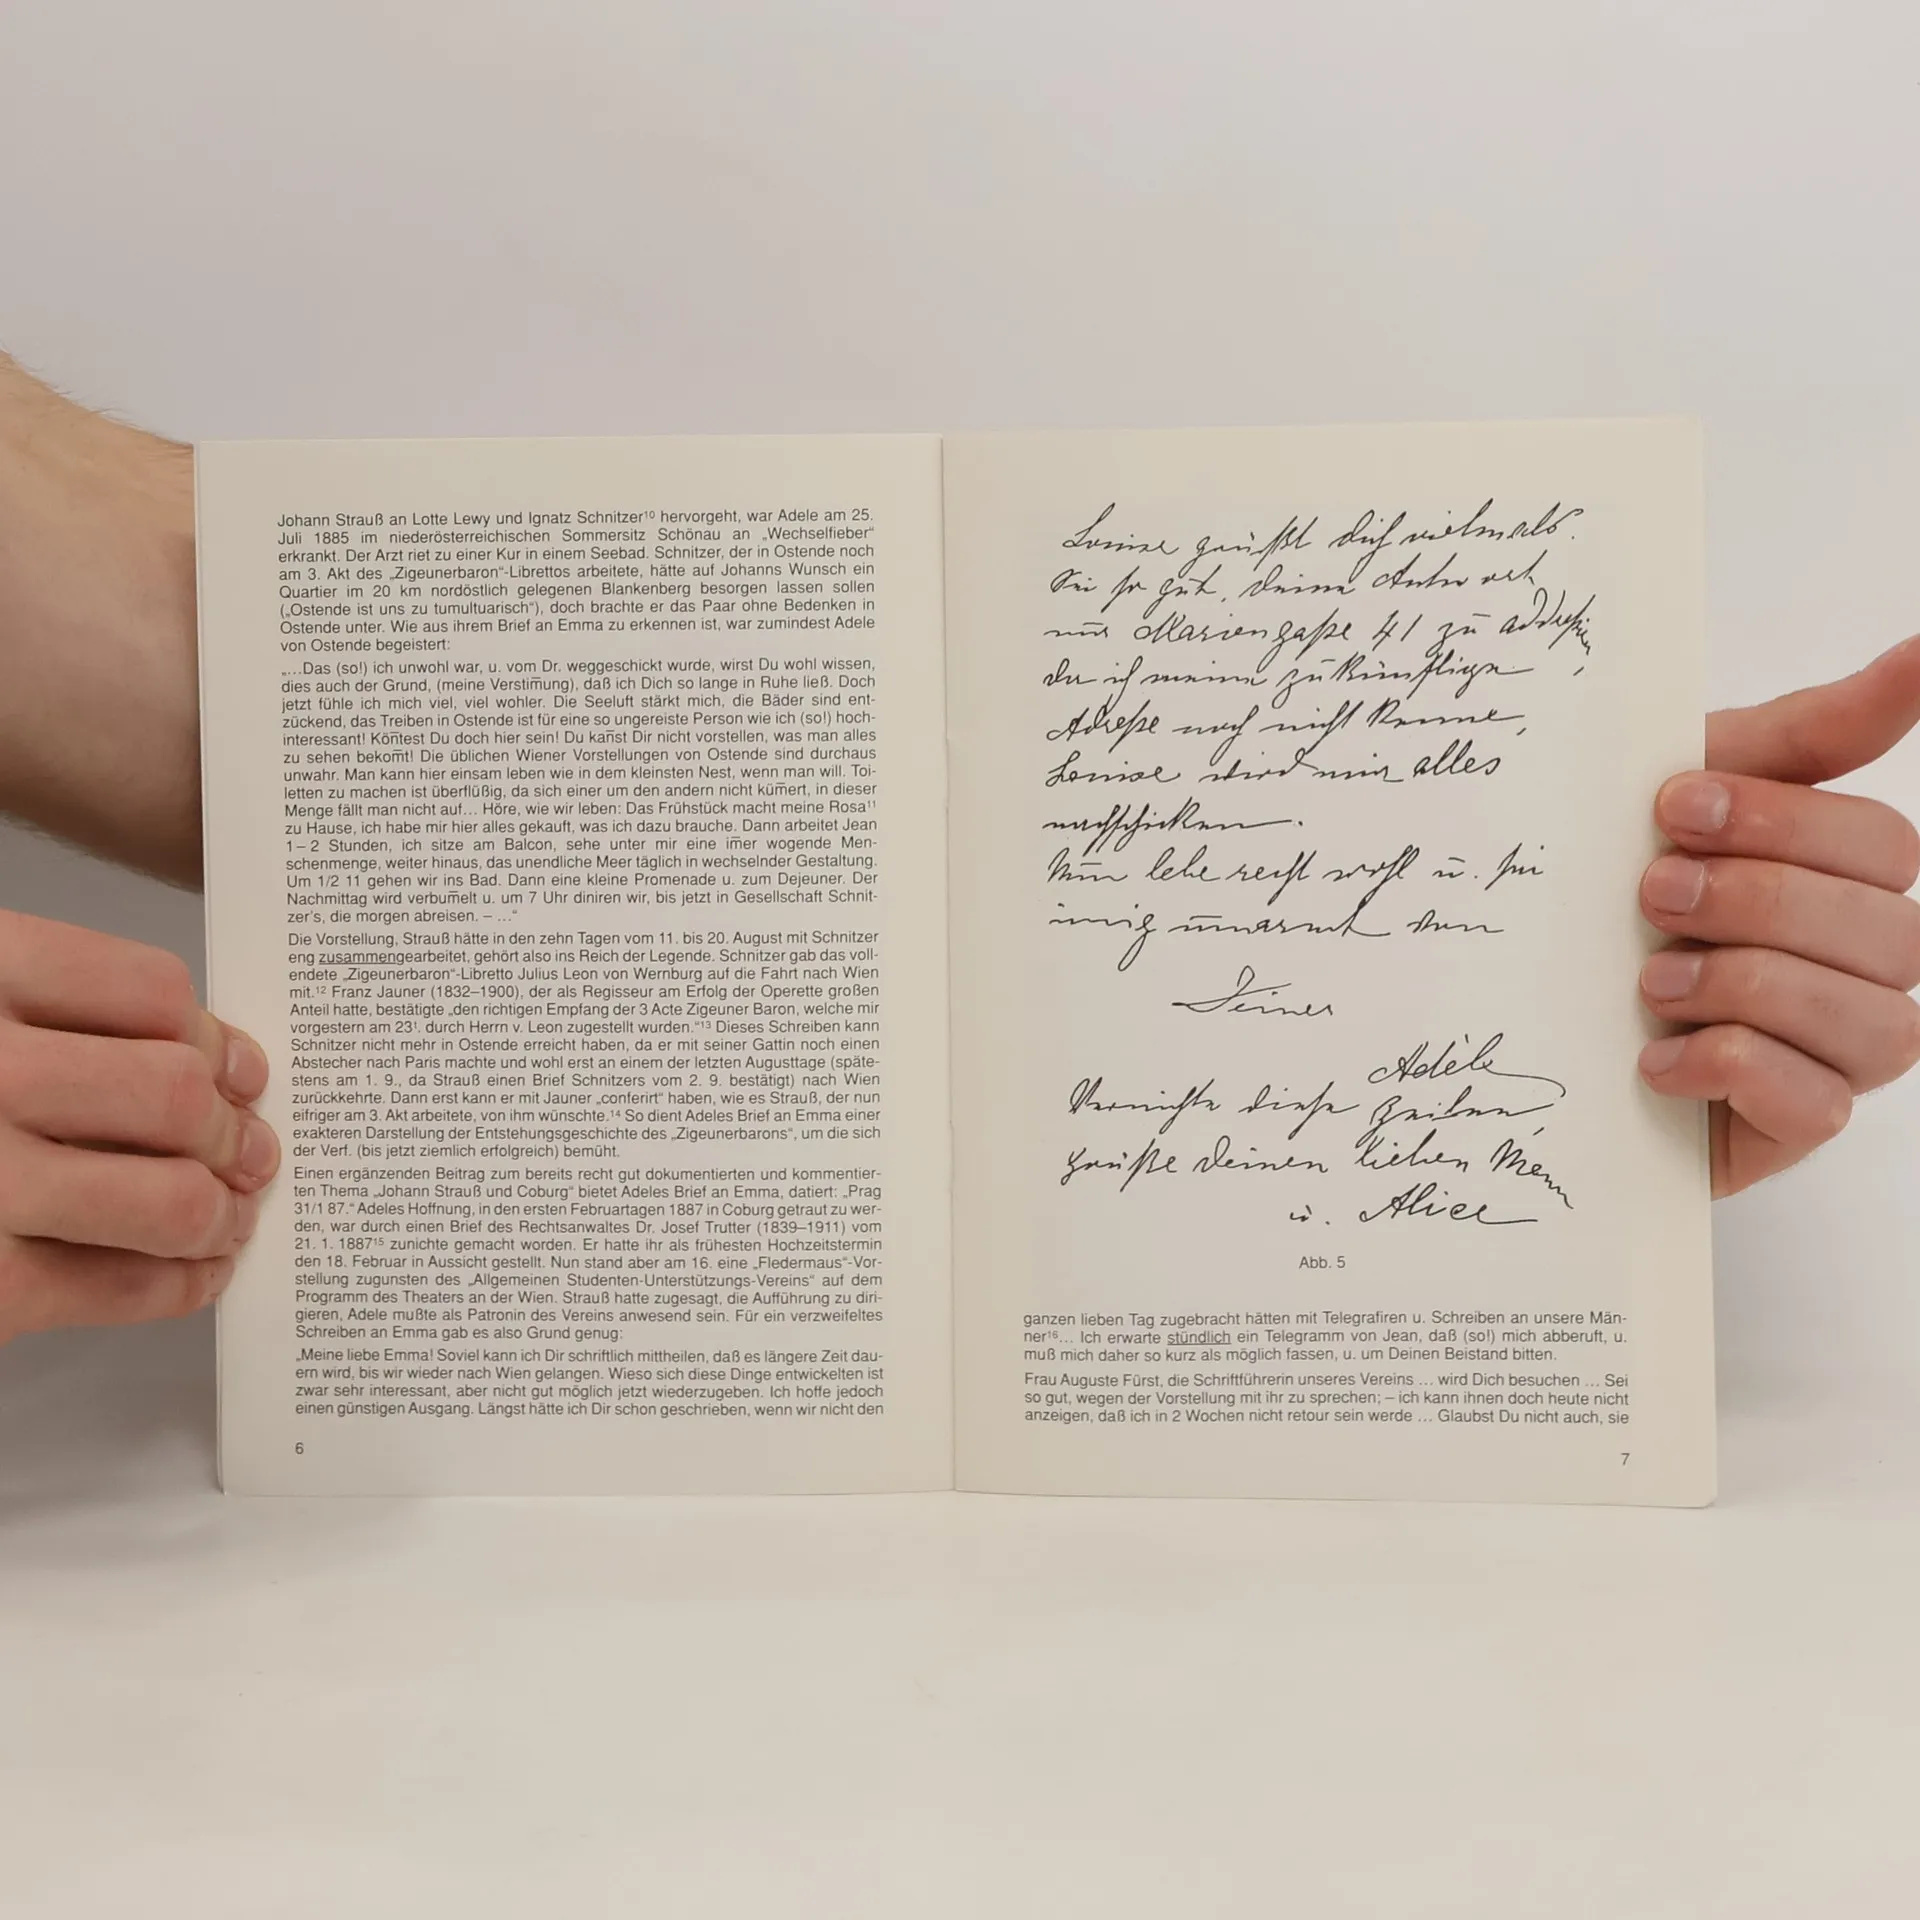 Johann Strauß an Lotte Lewy und Ignatz Schnitzer¹⁰ hervorgeht, war Adele am 25.
Juli 1885 im niederösterreichischen Sommersitz Schönau an „Wechselfieber“
erkrankt. Der Arzt riet zu einer Kur in einem Seebad. Schnitzer, der in Ostende noch
am 3. Akt des „Zigeunerbaron“-Librettos arbeitete, hätte auf Johanns Wunsch ein
Quartier im 20 km nordöstlich gelegenen Blankenberg besorgen lassen sollen
(„Ostende ist uns zu tumultuarisch“), doch brachte er das Paar ohne Bedenken in
Ostende unter. Wie aus ihrem Brief an Emma zu erkennen ist, war zumindest Adele
von Ostende begeistert:
„...Das (so!) ich unwohl war, u. vom Dr. weggeschickt wurde, wirst Du wohl wissen,
dies auch der Grund, (meine Verstim̅ung), daß ich Dich so lange in Ruhe ließ. Doch
jetzt fühle ich mich viel, viel wohler. Die Seeluft stärkt mich, die Bäder sind ent-
zückend, das Treiben in Ostende ist für eine so ungereiste Person wie ich (so!) hoch-
interessant! Kön̅test Du doch hier sein! Du kan̅st Dir nicht vorstellen, was man alles
zu sehen bekom̅t! Die üblichen Wiener Vorstellungen von Ostende sind durchaus
unwahr. Man kann hier einsam leben wie in dem kleinsten Nest, wenn man will. Toi-
letten zu machen ist überflüßig, da sich einer um den andern nicht küm̅ert, in dieser
Menge fällt man nicht auf... Höre, wie wir leben: Das Frühstück macht meine Rosa¹¹
zu Hause, ich habe mir hier alles gekauft, was ich dazu brauche. Dann arbeitet Jean
1–2 Stunden, ich sitze am Balcon, sehe unter mir eine im̅er wogende Men-
schenmenge, weiter hinaus, das unendliche Meer täglich in wechselnder Gestaltung.
Um 1/2 11 gehen wir ins Bad. Dann eine kleine Promenade u. zum Dejeuner. Der
Nachmittag wird verbum̅elt u. um 7 Uhr diniren wir, bis jetzt in Gesellschaft Schnit-
zer's, die morgen abreisen. – ...“
Die Vorstellung, Strauß hätte in den zehn Tagen vom 11. bis 20. August mit Schnitzer
eng zusammengearbeitet, gehört also ins Reich der Legende. Schnitzer gab das voll-
endete „Zigeunerbaron“-Libretto Julius Leon von Wernburg auf die Fahrt nach Wien
mit.¹² Franz Jauner (1832–1900), der als Regisseur am Erfolg der Operette großen
Anteil hatte, bestätigte „den richtigen Empfang der 3 Acte Zigeuner Baron, welche mir
vorgestern am 23ᵗ. durch Herrn v. Leon zugestellt wurden.“¹³ Dieses Schreiben kann
Schnitzer nicht mehr in Ostende erreicht haben, da er mit seiner Gattin noch einen
Abstecher nach Paris machte und wohl erst an einem der letzten Augusttage (späte-
stens am 1. 9., da Strauß einen Brief Schnitzers vom 2. 9. bestätigt) nach Wien
zurückkehrte. Dann erst kann er mit Jauner „conferirt“ haben, wie es Strauß, der nun
eifriger am 3. Akt arbeitete, von ihm wünschte.¹⁴ So dient Adeles Brief an Emma einer
exakteren Darstellung der Entstehungsgeschichte des „Zigeunerbarons“, um die sich
der Verf. (bis jetzt ziemlich erfolgreich) bemüht.
Einen ergänzenden Beitrag zum bereits recht gut dokumentierten und kommentier-
ten Thema „Johann Strauß und Coburg“ bietet Adeles Brief an Emma, datiert: „Prag
31/1 87.“ Adeles Hoffnung, in den ersten Februartagen 1887 in Coburg getraut zu wer-
den, war durch einen Brief des Rechtsanwaltes Dr. Josef Trutter (1839–1911) vom
21. 1. 1887¹⁵ zunichte gemacht worden. Er hatte ihr als frühesten Hochzeitstermin
den 18. Februar in Aussicht gestellt. Nun stand aber am 16. eine „Fledermaus“-Vor-
stellung zugunsten des „Allgemeinen Studenten-Unterstützungs-Vereins“ auf dem
Programm des Theaters an der Wien. Strauß hatte zugesagt, die Aufführung zu diri-
gieren, Adele mußte als Patronin des Vereins anwesend sein. Für ein verzweifeltes
Schreiben an Emma gab es also Grund genug:
„Meine liebe Emma! Soviel kann ich Dir schriftlich mittheilen, daß es längere Zeit dau-
ern wird, bis wir wieder nach Wien gelangen. Wieso sich diese Dinge entwickelten ist
zwar sehr interessant, aber nicht gut möglich jetzt wiederzugeben. Ich hoffe jedoch
einen günstigen Ausgang. Längst hätte ich Dir schon geschrieben, wenn wir nicht den
6
Louise grüßt dich vielmals.
Sei so gut, deine Antwort
nur Mariengaße 41 zu addreßiren,
da ich meine zukünftige
Adreße noch nicht kenne,
Louise wird mir alles
nachschicken.
Nun lebe recht wohl u. sei
innig umarmt von
Deiner
Adèle
Vernichte diese Zeilen,
grüße Deinen lieben Mann
u. Alice
Abb. 5
ganzen lieben Tag zugebracht hätten mit Telegrafiren u. Schreiben an unsere Män-
ner¹⁶... Ich erwarte stündlich ein Telegramm von Jean, daß (so!) mich abberuft, u.
muß mich daher so kurz als möglich fassen, u. um Deinen Beistand bitten.
Frau Auguste Fürst, die Schriftführerin unseres Vereins ... wird Dich besuchen ... Sei
so gut, wegen der Vorstellung mit ihr zu sprechen; – ich kann ihnen doch heute nicht
anzeigen, daß ich in 2 Wochen nicht retour sein werde ... Glaubst Du nicht auch, sie
7